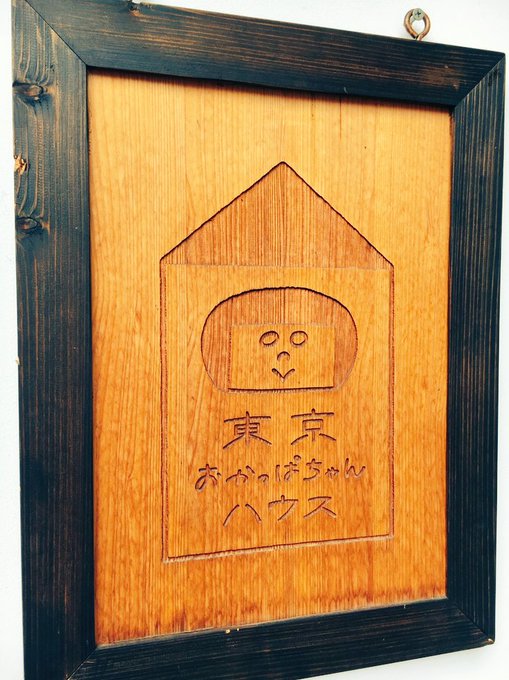 東京
おかっぱちゃん
ハウス